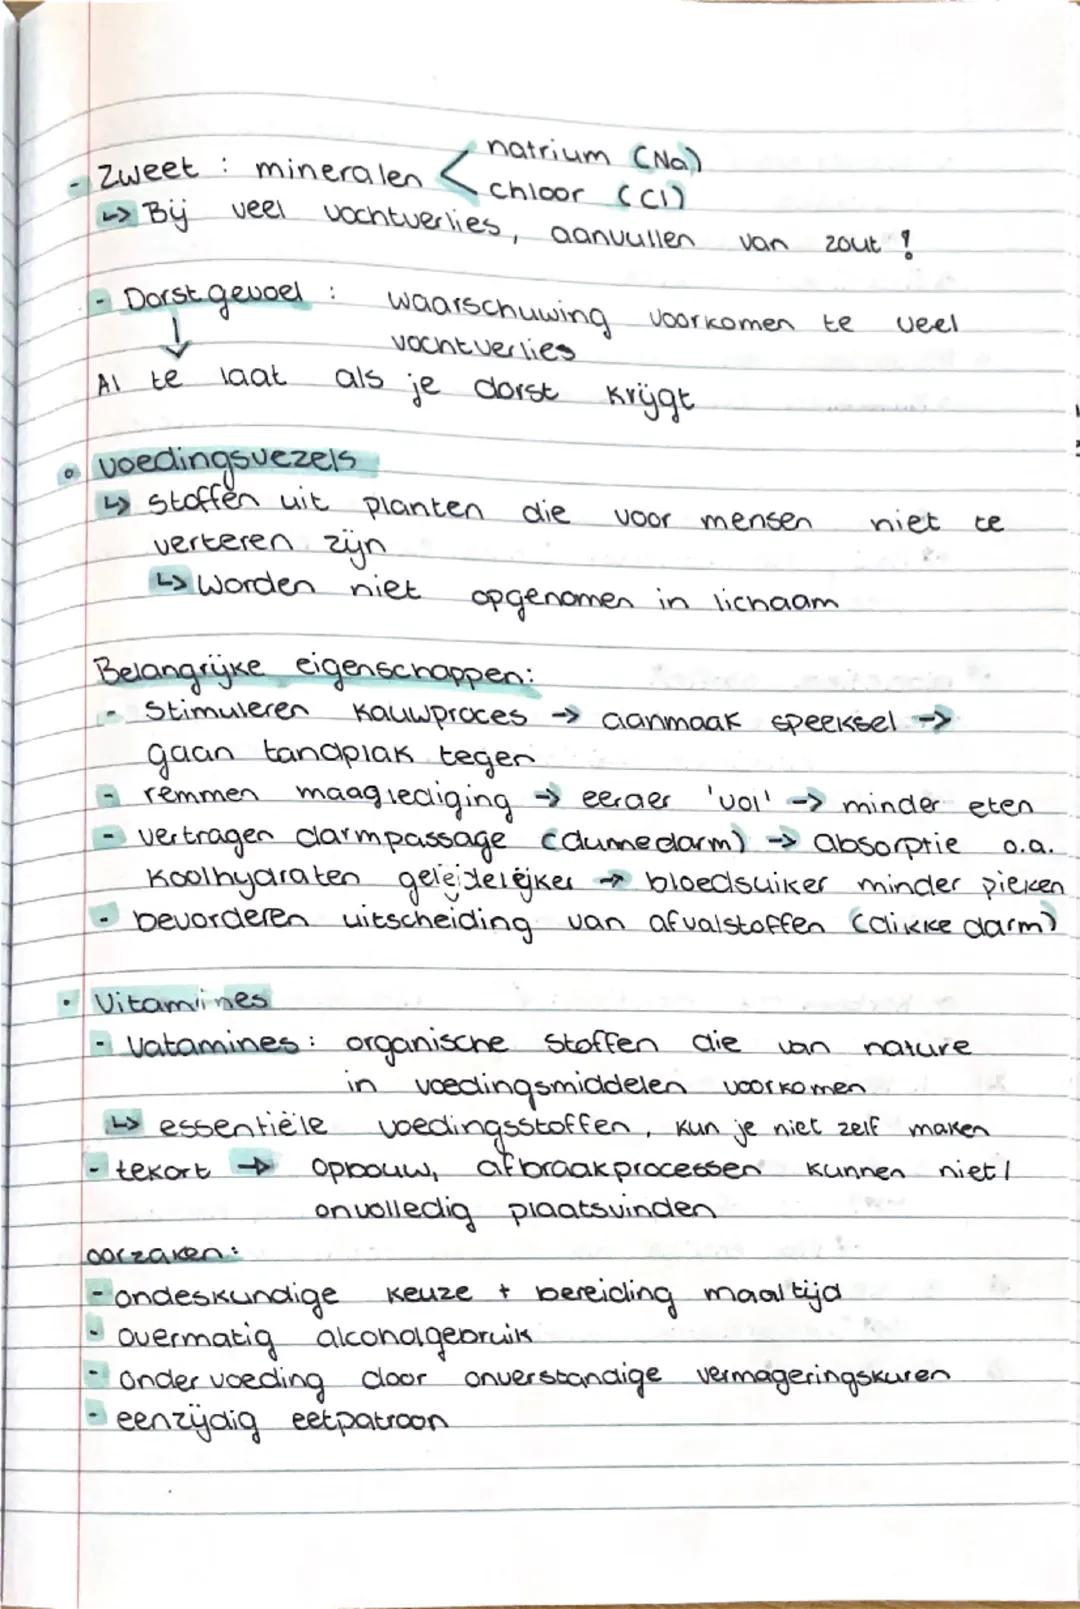 - Zweet : mineralen < natrium (Na)
chloor (Cl)
↳ Bij veel vochtverlies, aanvullen van zout !
- Dorstgevoel : waarschuwing voorkomen te veel
vochtverlies
↓
Al te laat als je dorst krijgt
• voedingsvezels
↳ stoffen uit planten die voor mensen niet te
verteren zijn
↳ Worden niet opgenomen in lichaam
Belangrijke eigenschappen:
- Stimuleren kauwproces → aanmaak speeksel →
gaan tandplak tegen
- remmen maaglediging → eerder 'vol' → minder eten
- vertragen darmpassage (dunnedarm) → absorptie o.a.
koolhydraten geleidelijker → bloedsuiker minder pieken
- bevorderen uitscheiding van afvalstoffen (dikke darm)
• Vitamines
- Vatamines : organische stoffen die van nature
in voedingsmiddelen voorkomen
↳ essentiële voedingsstoffen, kun je niet zelf maken
- tekort → opbouw, afbraakprocessen kunnen niet /
onvolledig plaatsvinden
oorzaken:
- ondeskundige keuze + bereiding maaltijd
- overmatig alcoholgebruik
- ondervoeding door onverstandige vermageringskuren
- eenzijdig eetpatroon